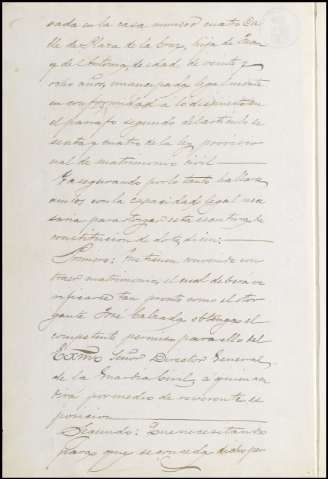 sada en la casa numero cuatro Ca
lle de Plaza de la Cruz, hija de Juan
y de Antonia, de edad de veinte y
seis años, emancipada legalmente
en conformidad a lo dispuesto en
el parrafo segundo del articulo se
senta y cuatro de la ley provicio
nal de matrimonio civil
Y asegurando por lo tanto hallarse
ambos con la capacidad legal nece
saria para otorgar esta escritura de
constitucion de dote, dicen:
Primero: Que tienen convenido con
traer matrimonio, el cual deberá ve
rificarse tan pronto como el otor
gante José Calzada obtenga el
competente permiso para ello del
Exmo Señor Director General
de la Guardia Civil, a quien acu
dirá por medio de reverente es
posicion
Segundo: Que necesitando
para que se conceda dicho per